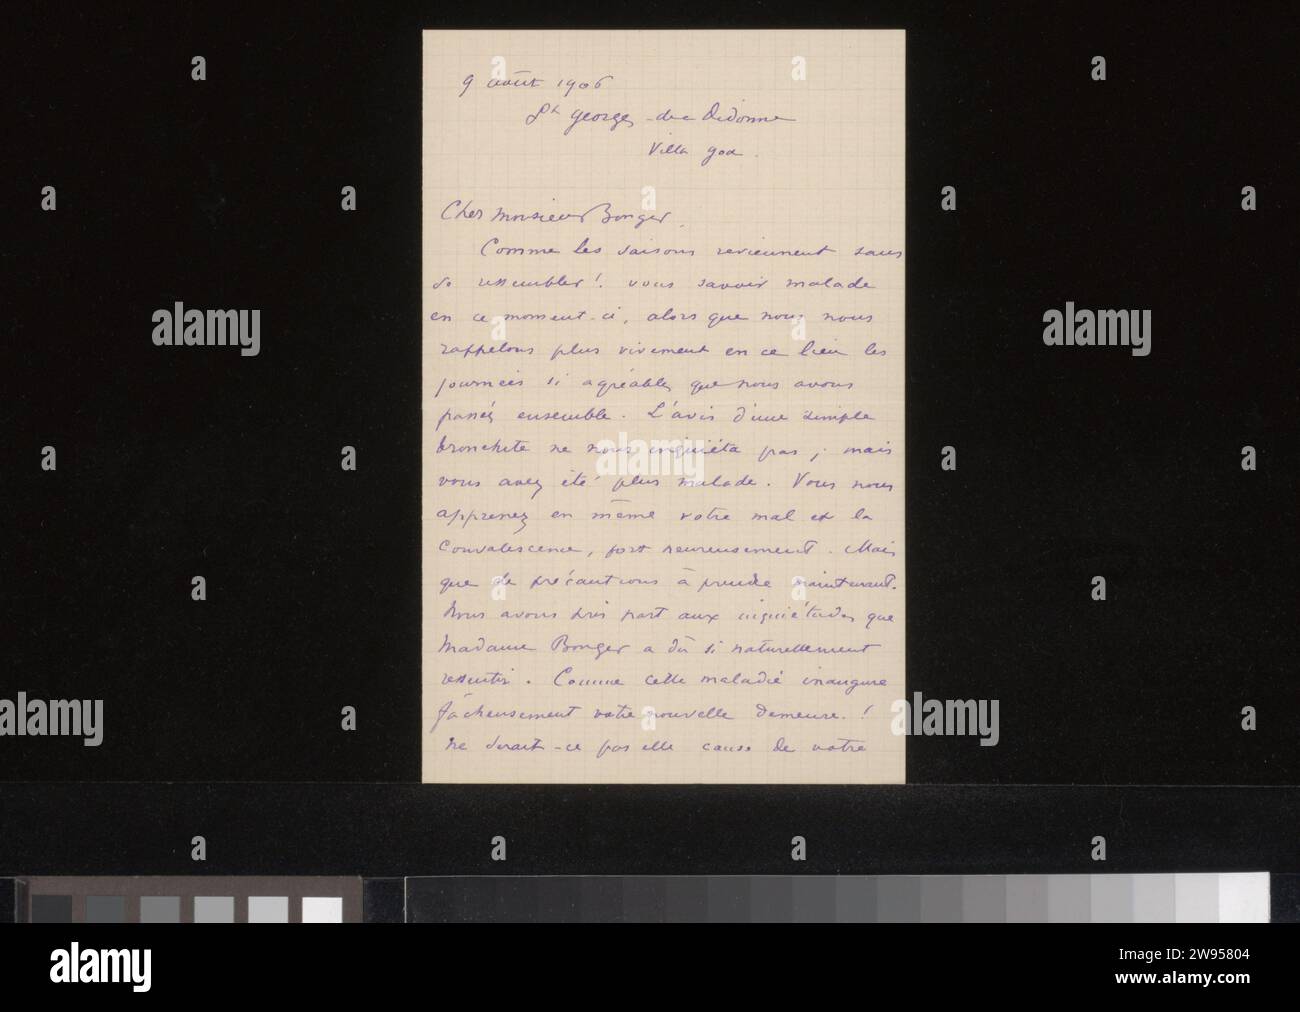 9 août 1906
St georges de Didonne
Villa goa.
Cher Monsieur Bonger,
Comme les saisons reviennent sans
se ressembler! vous savoir malade
en ce moment-ci, alors que nous nous
rappelons plus vivement en ce lieu les
journées si agréables que nous avons
passées ensemble. L'avis d'une simple
bronchite ne nous inquiéta pas; mais
vous avez été plus malade. Vous nous
apprenez en même votre mal et la
convalescence, fort heureusement. Mais
que de précautions à prendre maintenant.
Nous avons pris part aux inquiétudes que
Madame Bonger a dû si naturellement
ressentir. Comme cette maladie inaugure
fâcheusement votre nouvelle demeure!
ne serait-ce pas elle cause de votre
alamy
a
alamy
Image ID: 2W95804
www.alamy.com